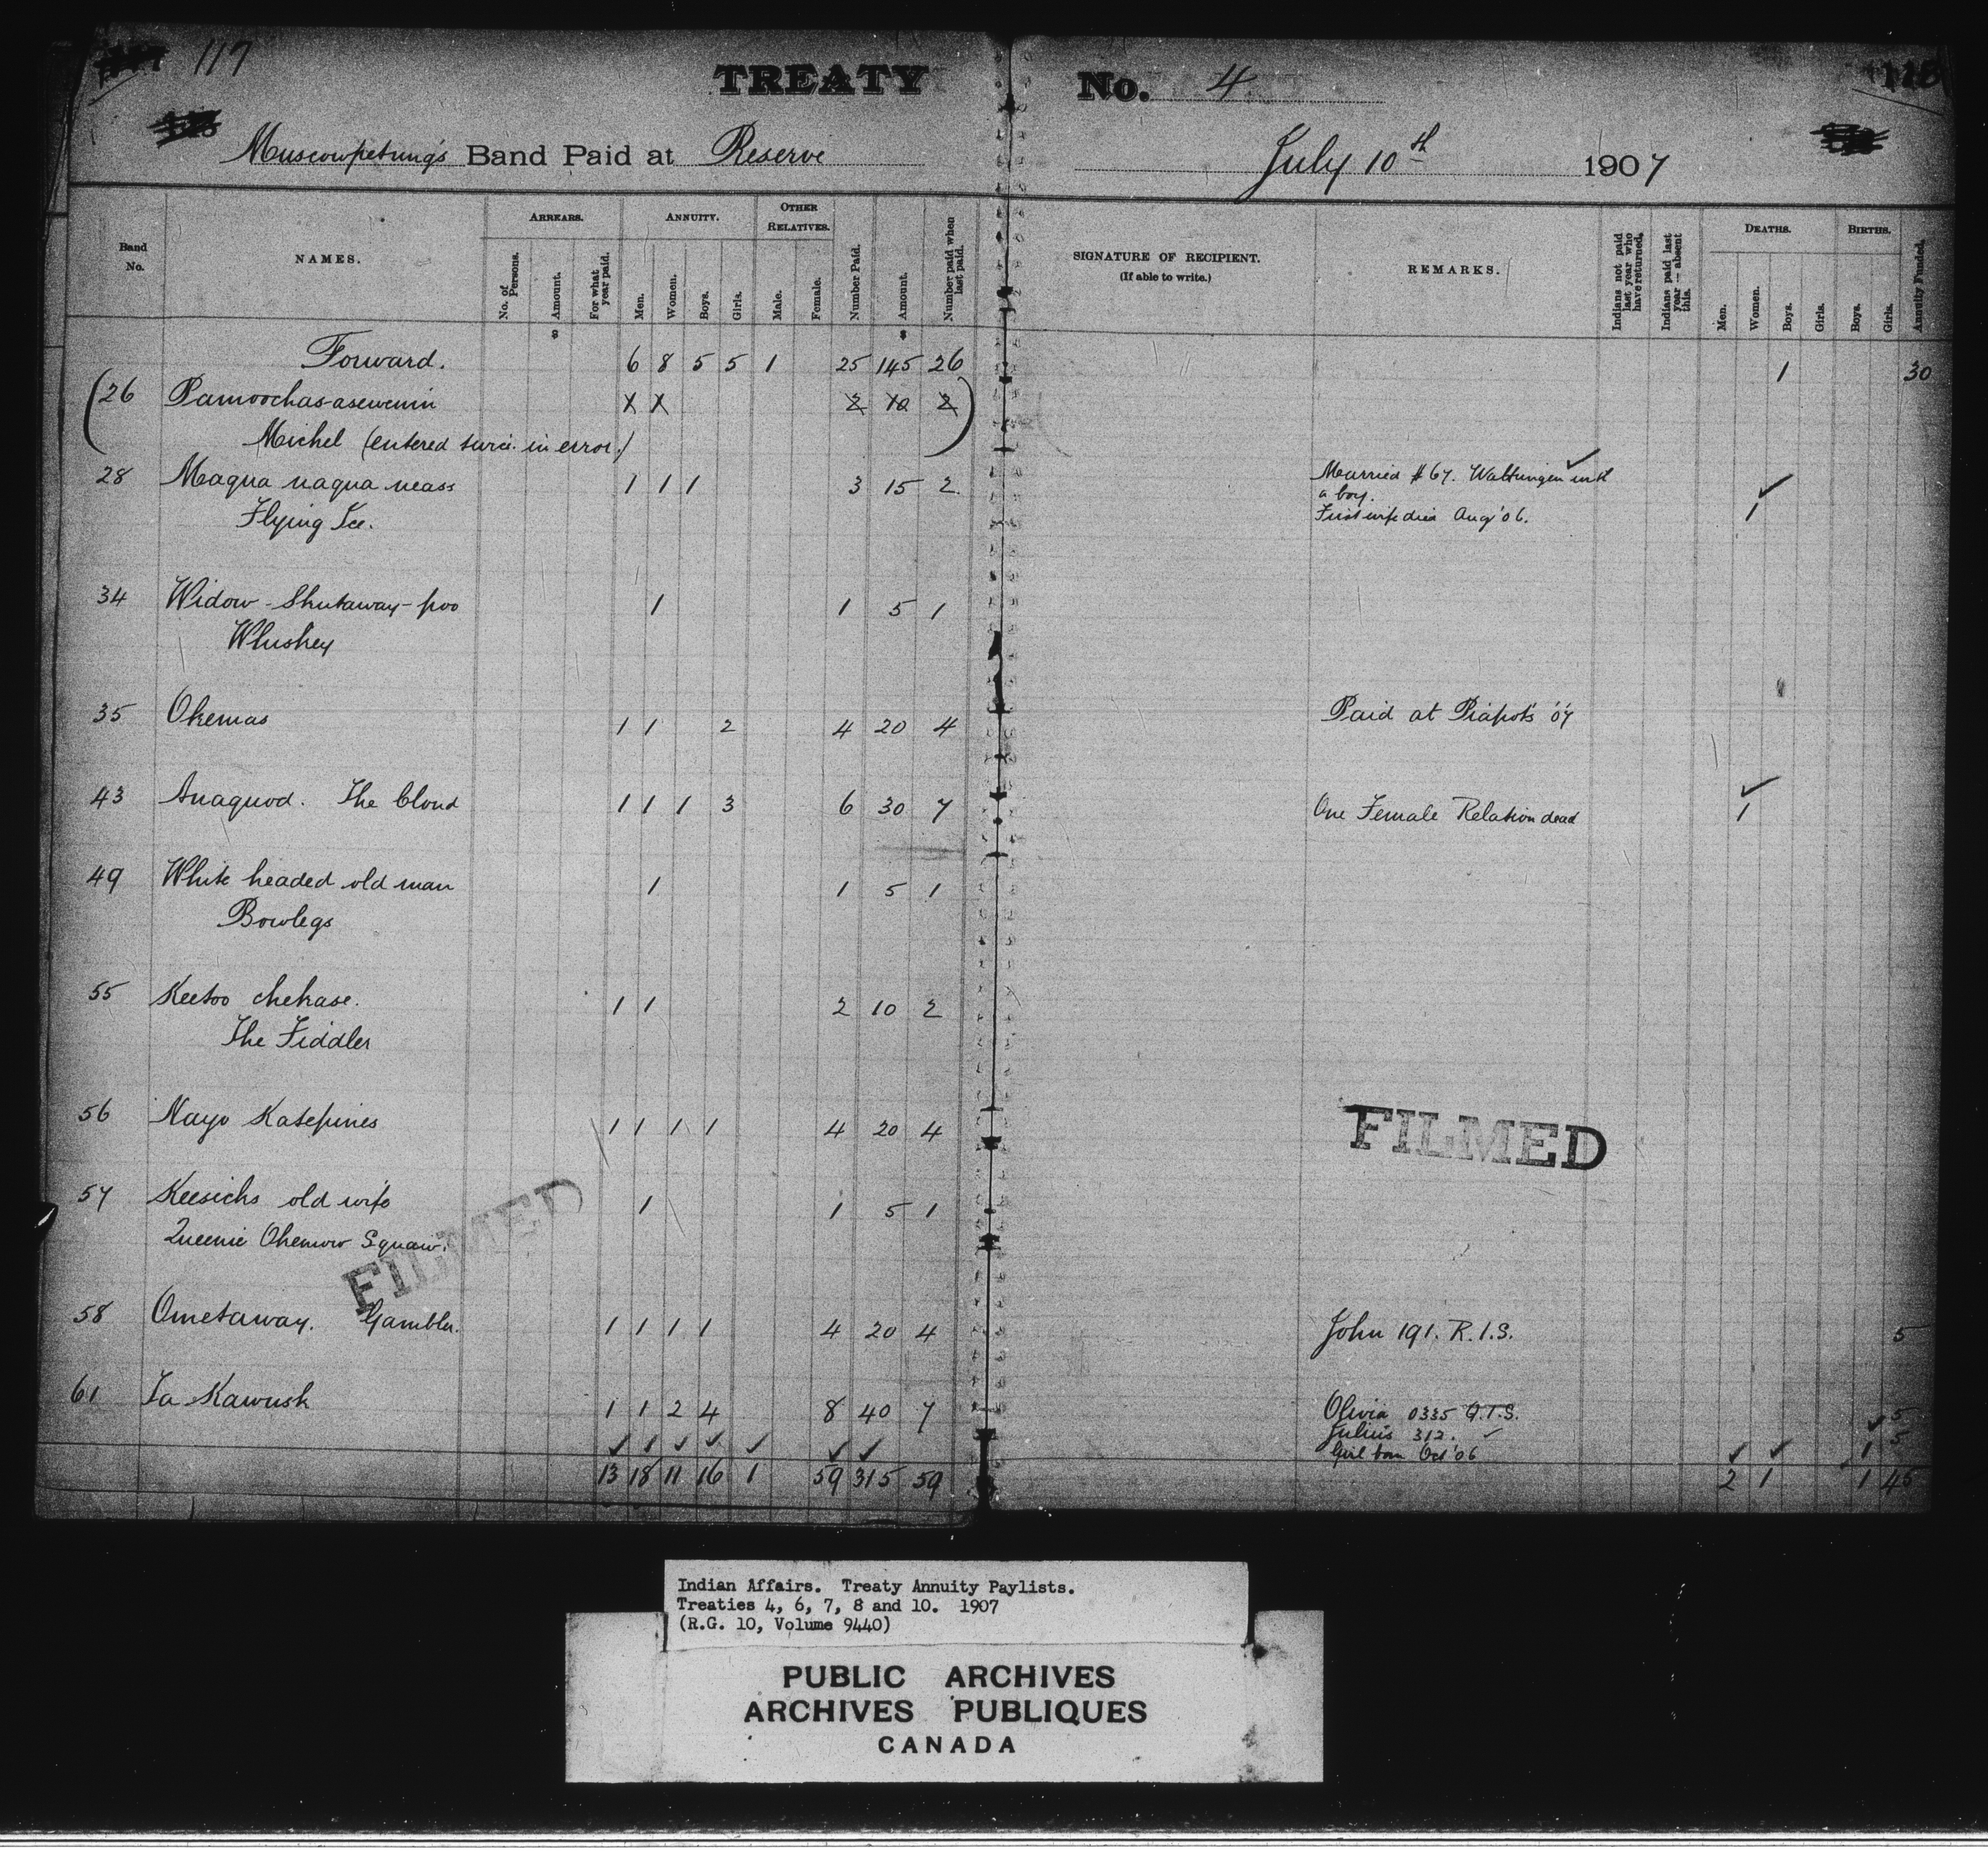 117
TREATY No. 4
118
Muscowpetung's Band Paid at Reserve July 10th 1907
Band No.
NAMES.
ARREARS.
No. of Persons.
Amount.
For what year paid.
ANNUITY.
Men.
Women.
Boys.
Girls.
OTHER RELATIVES.
Male.
Female.
Number Paid.
Amount.
Number paid when last paid.
SIGNATURE OF RECIPIENT.
(If able to write.)
REMARKS.
Indians not paid last year who have returned.
Indians paid last year — absent this.
DEATHS.
Men.
Women.
Boys.
Girls.
BIRTHS.
Boys.
Girls.
Annuity Funded.
$ $
Forward. 6 8 5 5 1 25 145 26 1 30
(26 Pamoochas-asewenin X X 2 10 2)
Michel (entered twice in error)
28 Maqua naqua neass 1 1 1 3 15 2 Married #67. Waltungen with ✓
a boy. ✓
Flying Ice. First wife died Aug '06. 1
34 Widow - Shutaway-poo 1 1 5 1
Whuskey
35 Okemas 1 1 2 4 20 4 Paid at Piapots '07
43 Anaquod. The Cloud 1 1 1 3 6 30 7 One Female Relation dead ✓ 1
49 White headed old man 1 1 5 1
Bowlegs
55 Keetoo chekase. 1 1 2 10 2
The Fiddler
56 Nayo Katepines 1 1 1 1 4 20 4
FILMED
57 Keesicks old wife 1 1 5 1
Queenie Okemow Squaw.
FILMED
58 Ometaway. Gambler. 1 1 1 1 4 20 4 John 191. R.I.S. 5
61 Ta Kawusk 1 1 2 4 8 40 7 Olivia 0335 Q.I.S. 5
Julius 312. ✓ ✓ 5
✓ 1 ✓ ✓ ✓ ✓ ✓ Girl born Oct '06 ✓ ✓ 1
13 18 11 16 1 59 315 59 2 1 1 45
Indian Affairs. Treaty Annuity Paylists.
Treaties 4, 6, 7, 8 and 10. 1907
(R.G. 10, Volume 9440)
PUBLIC ARCHIVES
ARCHIVES PUBLIQUES
CANADA